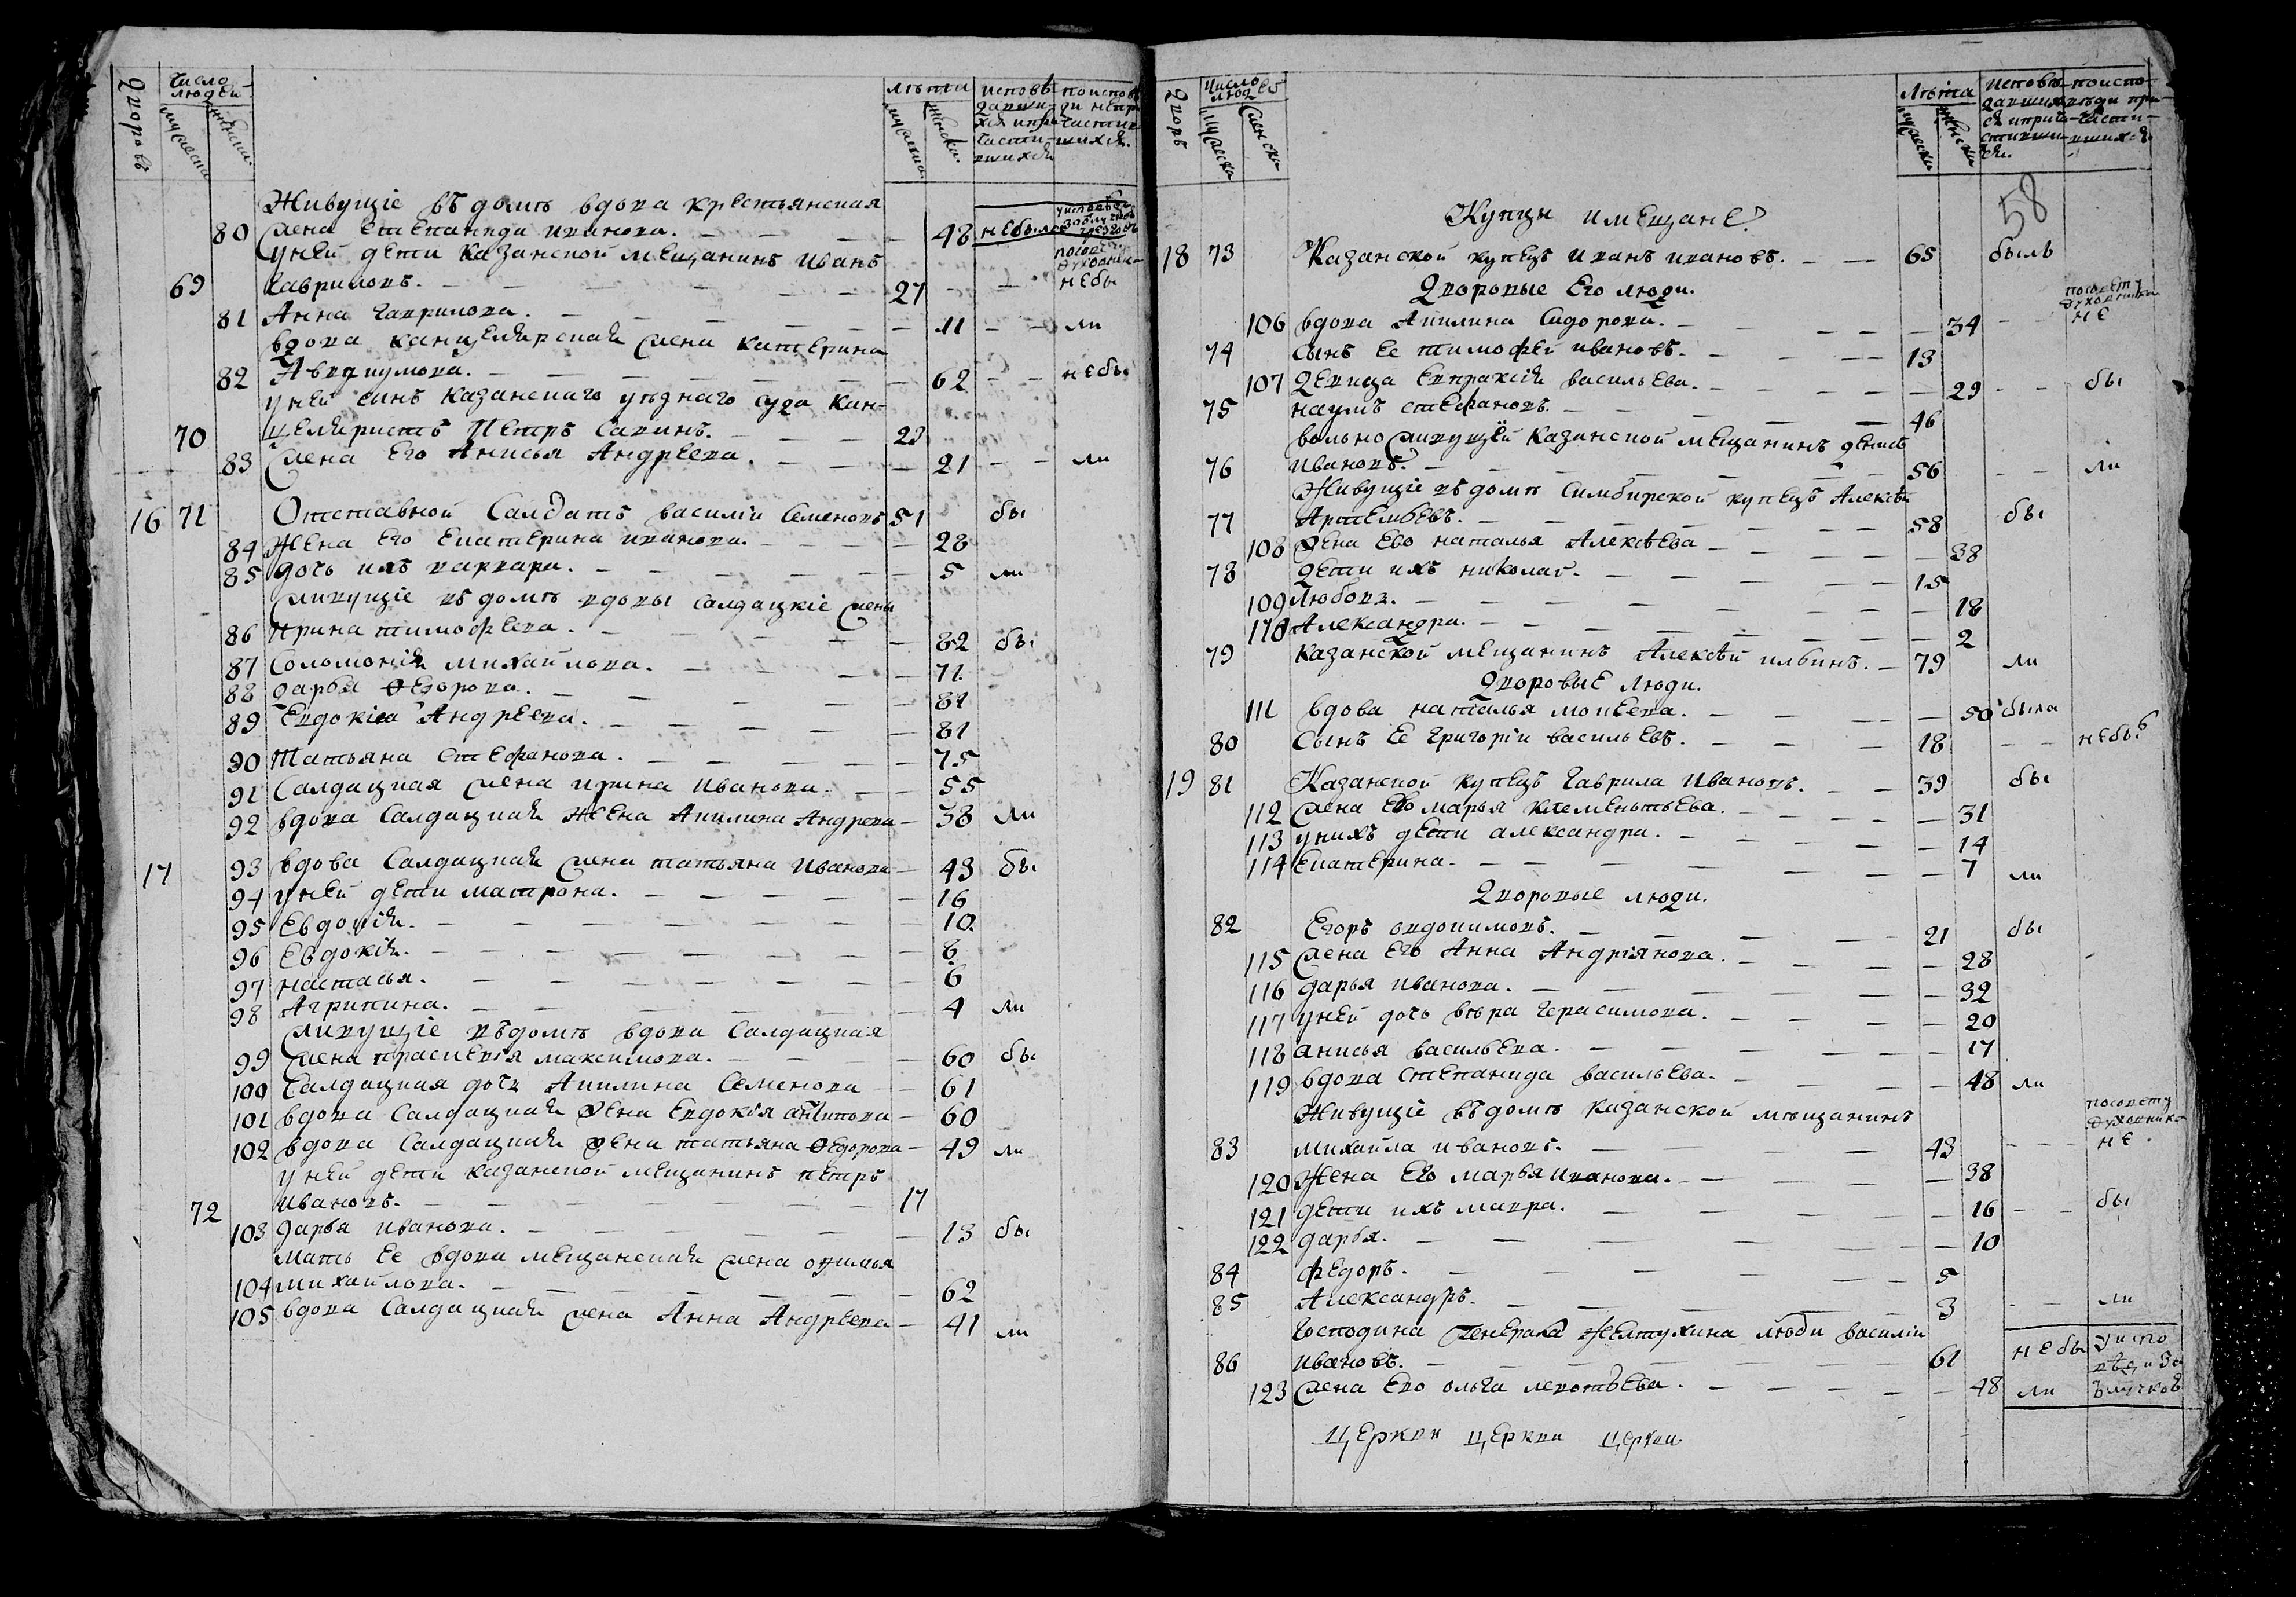 Дворовъ
Число людей
мужеска
женска
лѣты
мужеска
женска
исповѣдавшихся и причастившихся
поисповѣди непричастившихся
Живущіе въ домѣ вдова крестьянская
80 жена Степанида иванова. 48 небыла
у ней дети казанской мещанинъ Иванъ
69 Гавриловъ. 27 посовету духовника небы
81 Анна Гаврилова. 11 ли
вдова канцелярская жена катерина
82 Авдумова. 62 небы
у ней сынъ казанскаго уѣзднаго суда кан-
70 целяристъ Петръ Савинъ. 23
83 жена Его Анисья Андреева. 21 ли
16 71 Отставной Салдатъ василіи Семеновъ 51 бы
84 Жена Его Екатерина иванова. 28
85 дочь ихъ варвара. 5 ли
живущіе въ домѣ вдовы салдацкіе жены
86 Ирина тимофеева. 82 бы
87 Соломонія михаилова. 71
88 дарья Ѳедорова. 82
89 Евдокіа Андреева. 81
90 Татьяна Стефанова. 75
91 Салдацкая жена ирина Иванова. 55
92 вдова Салдацкая Жена Акилина Андреева 38 ли
17 93 вдова Салдацкая жена татьяна Иванова 43 бы
94 у ней дети матрона. 16
95 Евдокія. 10
96 Евдокія. 8
97 настасья. 6
98 Агрипина. 4 ли
живущіе въ домѣ вдова Салдацкая
99 жена прасковія максимова. 60 бы
100 Салдацкая дочь Акилина Семенова 61
101 вдова Салдацкая жена Евдокія антипова 60
102 вдова Салдацкая жена татьяна Ѳедорова 49 ли
у ней дети казанской мещанинъ петръ
72 Ивановъ. 17
103 дарья иванова. 13 бы
мать Ее вдова мещанская жена
104 михаилова. 62
105 вдова Салдацкая жена Анна Андреева 41 ли
Дворъ
число людей
мужеска
женска
Лѣта
мужеска
женска
исповѣдавшихся и причастившихся
поисповѣди причастившихся
58
Купцы и мещане
18 73 Казанской купецъ иванъ ивановъ. 65 былъ
Дворовые Его люди.
106 вдова Акилина Сидорова. 34 посовету духовника не
74 Сынъ Ее тимофей ивановъ. 13
107 Девица Евпраксія васильева. 29 бы
75 наумъ стефановъ. 46
вольно живущей казанской мещанинъ денисъ
76 ивановъ. 56 ли
Живущіе въ домѣ Симбирской купецъ Алексѣй
77 Артемьевъ. 58 бы
108 жена Ево наталья Алексѣева 38
78 дети ихъ николай. 15
109 Любовь. 18
110 Александра. 2
79 казанской мещанинъ Алексѣй ильинъ. 79 ли
Дворовые люди.
111 вдова наталья мокеева. 50 была
80 Сынъ Ее Григоріи васильевъ. 18 небылъ
19 81 Казанской купецъ Гаврила Ивановъ. 39 бы
112 жена Ево марья клементьева. 31
113 у нихъ дети александра. 14
114 Екатерина. 7 ли
Дворовые люди.
82 Егоръ Евдокимовъ. 21 бы
115 жена Его Анна Андріянова. 28
116 дарья иванова. 32
117 у ней дочь вѣра герасимова. 20
118 анисья васильева. 17
119 вдова степанида васильева. 48 ли
Живущіе въ домѣ казанской мѣщанинъ
83 михайла ивановъ. 43 посовету духовника не
120 Жена Его марья иванова. 38
121 дети ихъ мавра. 16 бы
122 дарья. 10
84 федоръ. 5
85 Александръ. 3 ли
Господина генерала Желтухина люди василіи
86 ивановъ. 61 небы
123 жена Его ольга леонтьева. 48 ли
церкви церкви церкви